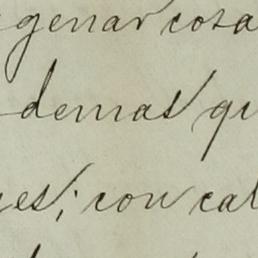 genar cosa
demas qu
es; con cal